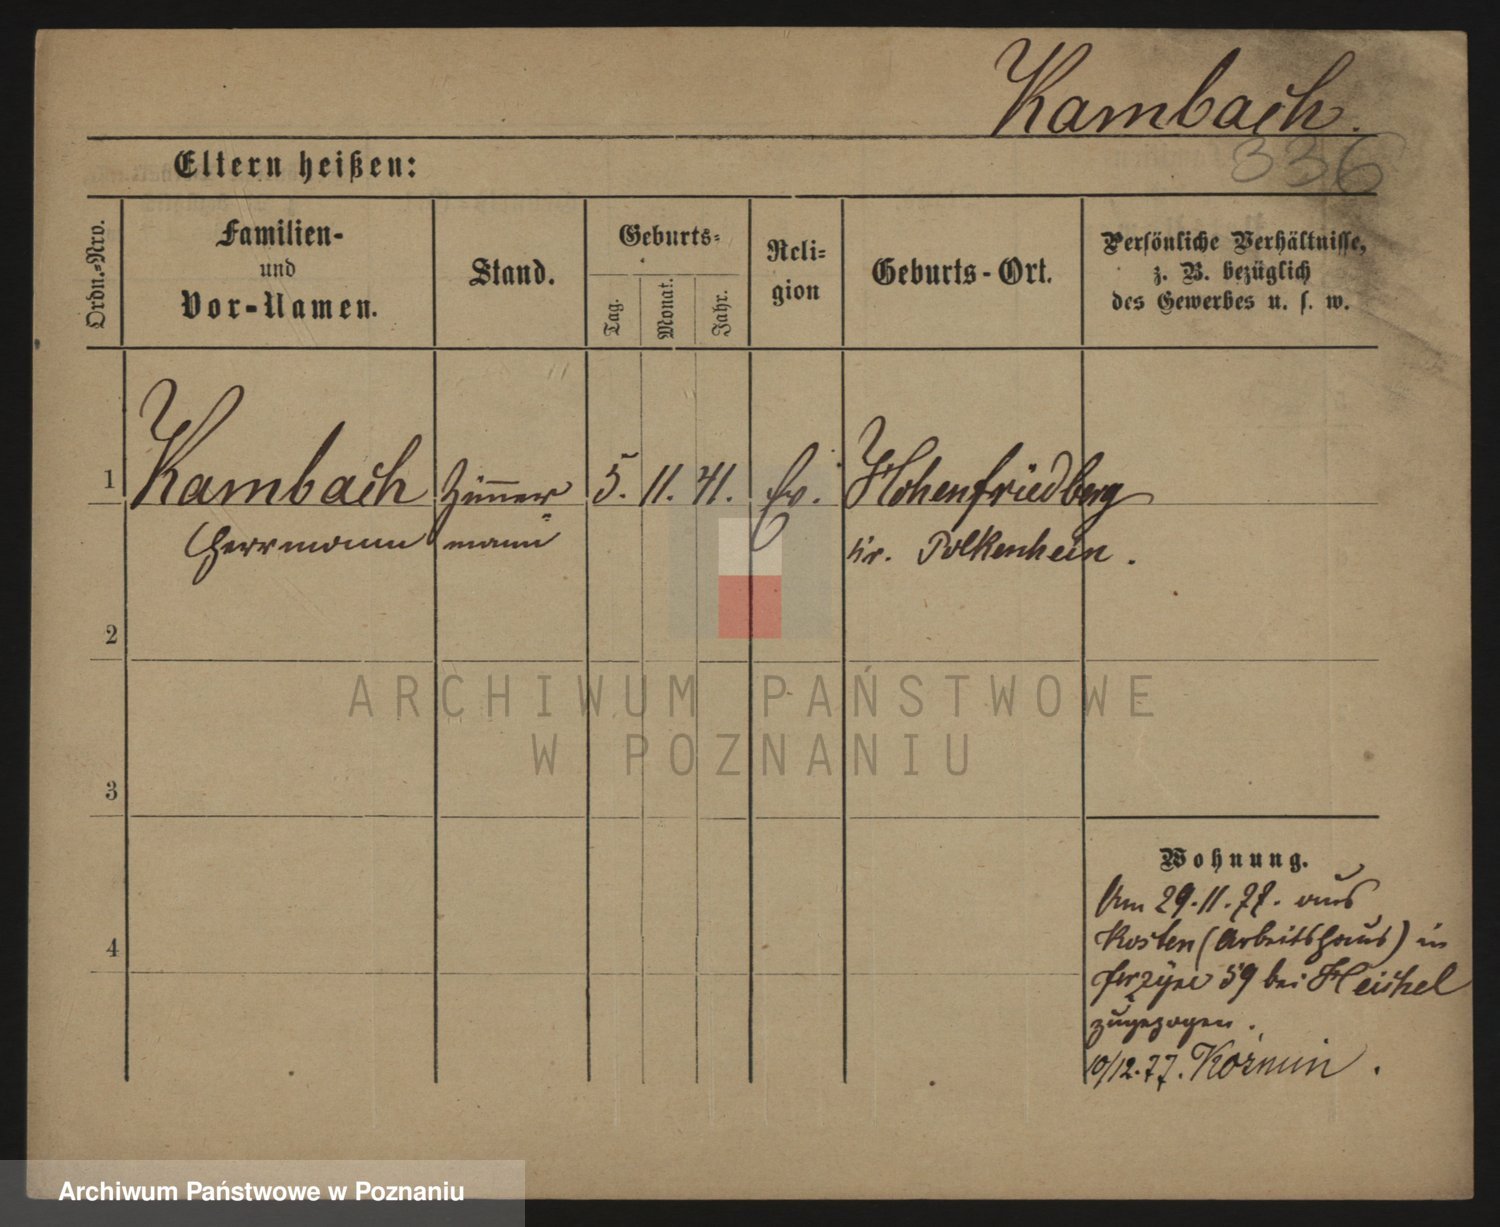 Kambach.
336
Eltern heißen:
Ordn.-Nro.
Familien-
und
Vor-Namen.
Stand.
Geburts-
Tag.
Monat.
Jahr.
Reli-
gion
Geburts-Ort.
Persönliche Verhältnisse,
z. B. bezüglich
des Gewerbes u. s. w.
1 Kambach Zimmer 5. 11. 41. Ev. Hohenfriedberg
Herrmann mann Kr. Polkenhein.
2
ARCHIWUM PAŃSTWOWE
W POZNANIU
3
Wohnung.
Am 29.11.77. aus
Kosten (Arbeitshaus) in
59 bei Heishel
4
zugezogen.
10/12.77. Kórnin.
Archiwum Państwowe w Poznaniu